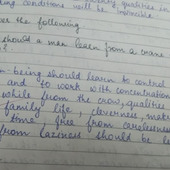 qualities in
ing conditions will be impossible
the following
should a man learn from a crane
?
being should learn to control
and to work with concentration
while from the crow, qualities
family life, cleverness, make
time free from carelessness
from laziness should be le